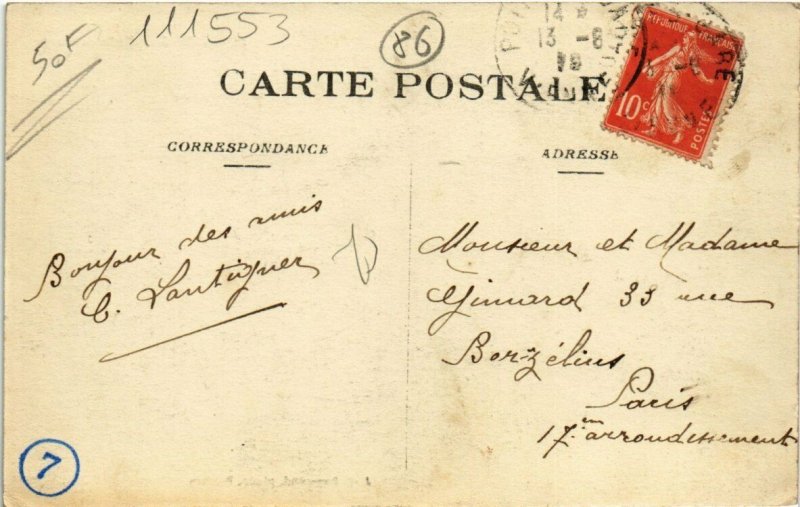 50F
111553
86
14
13-8
CARTE POSTALE
REPUBLIQUE FRANÇAISE
10c.
POSTES
CORRESPONDANCE
ADRESSE
Bonjour des amis
C. Lantigner
Monsieur et Madame
33 rue
Borzélius
Paris
17em arrondissement
7